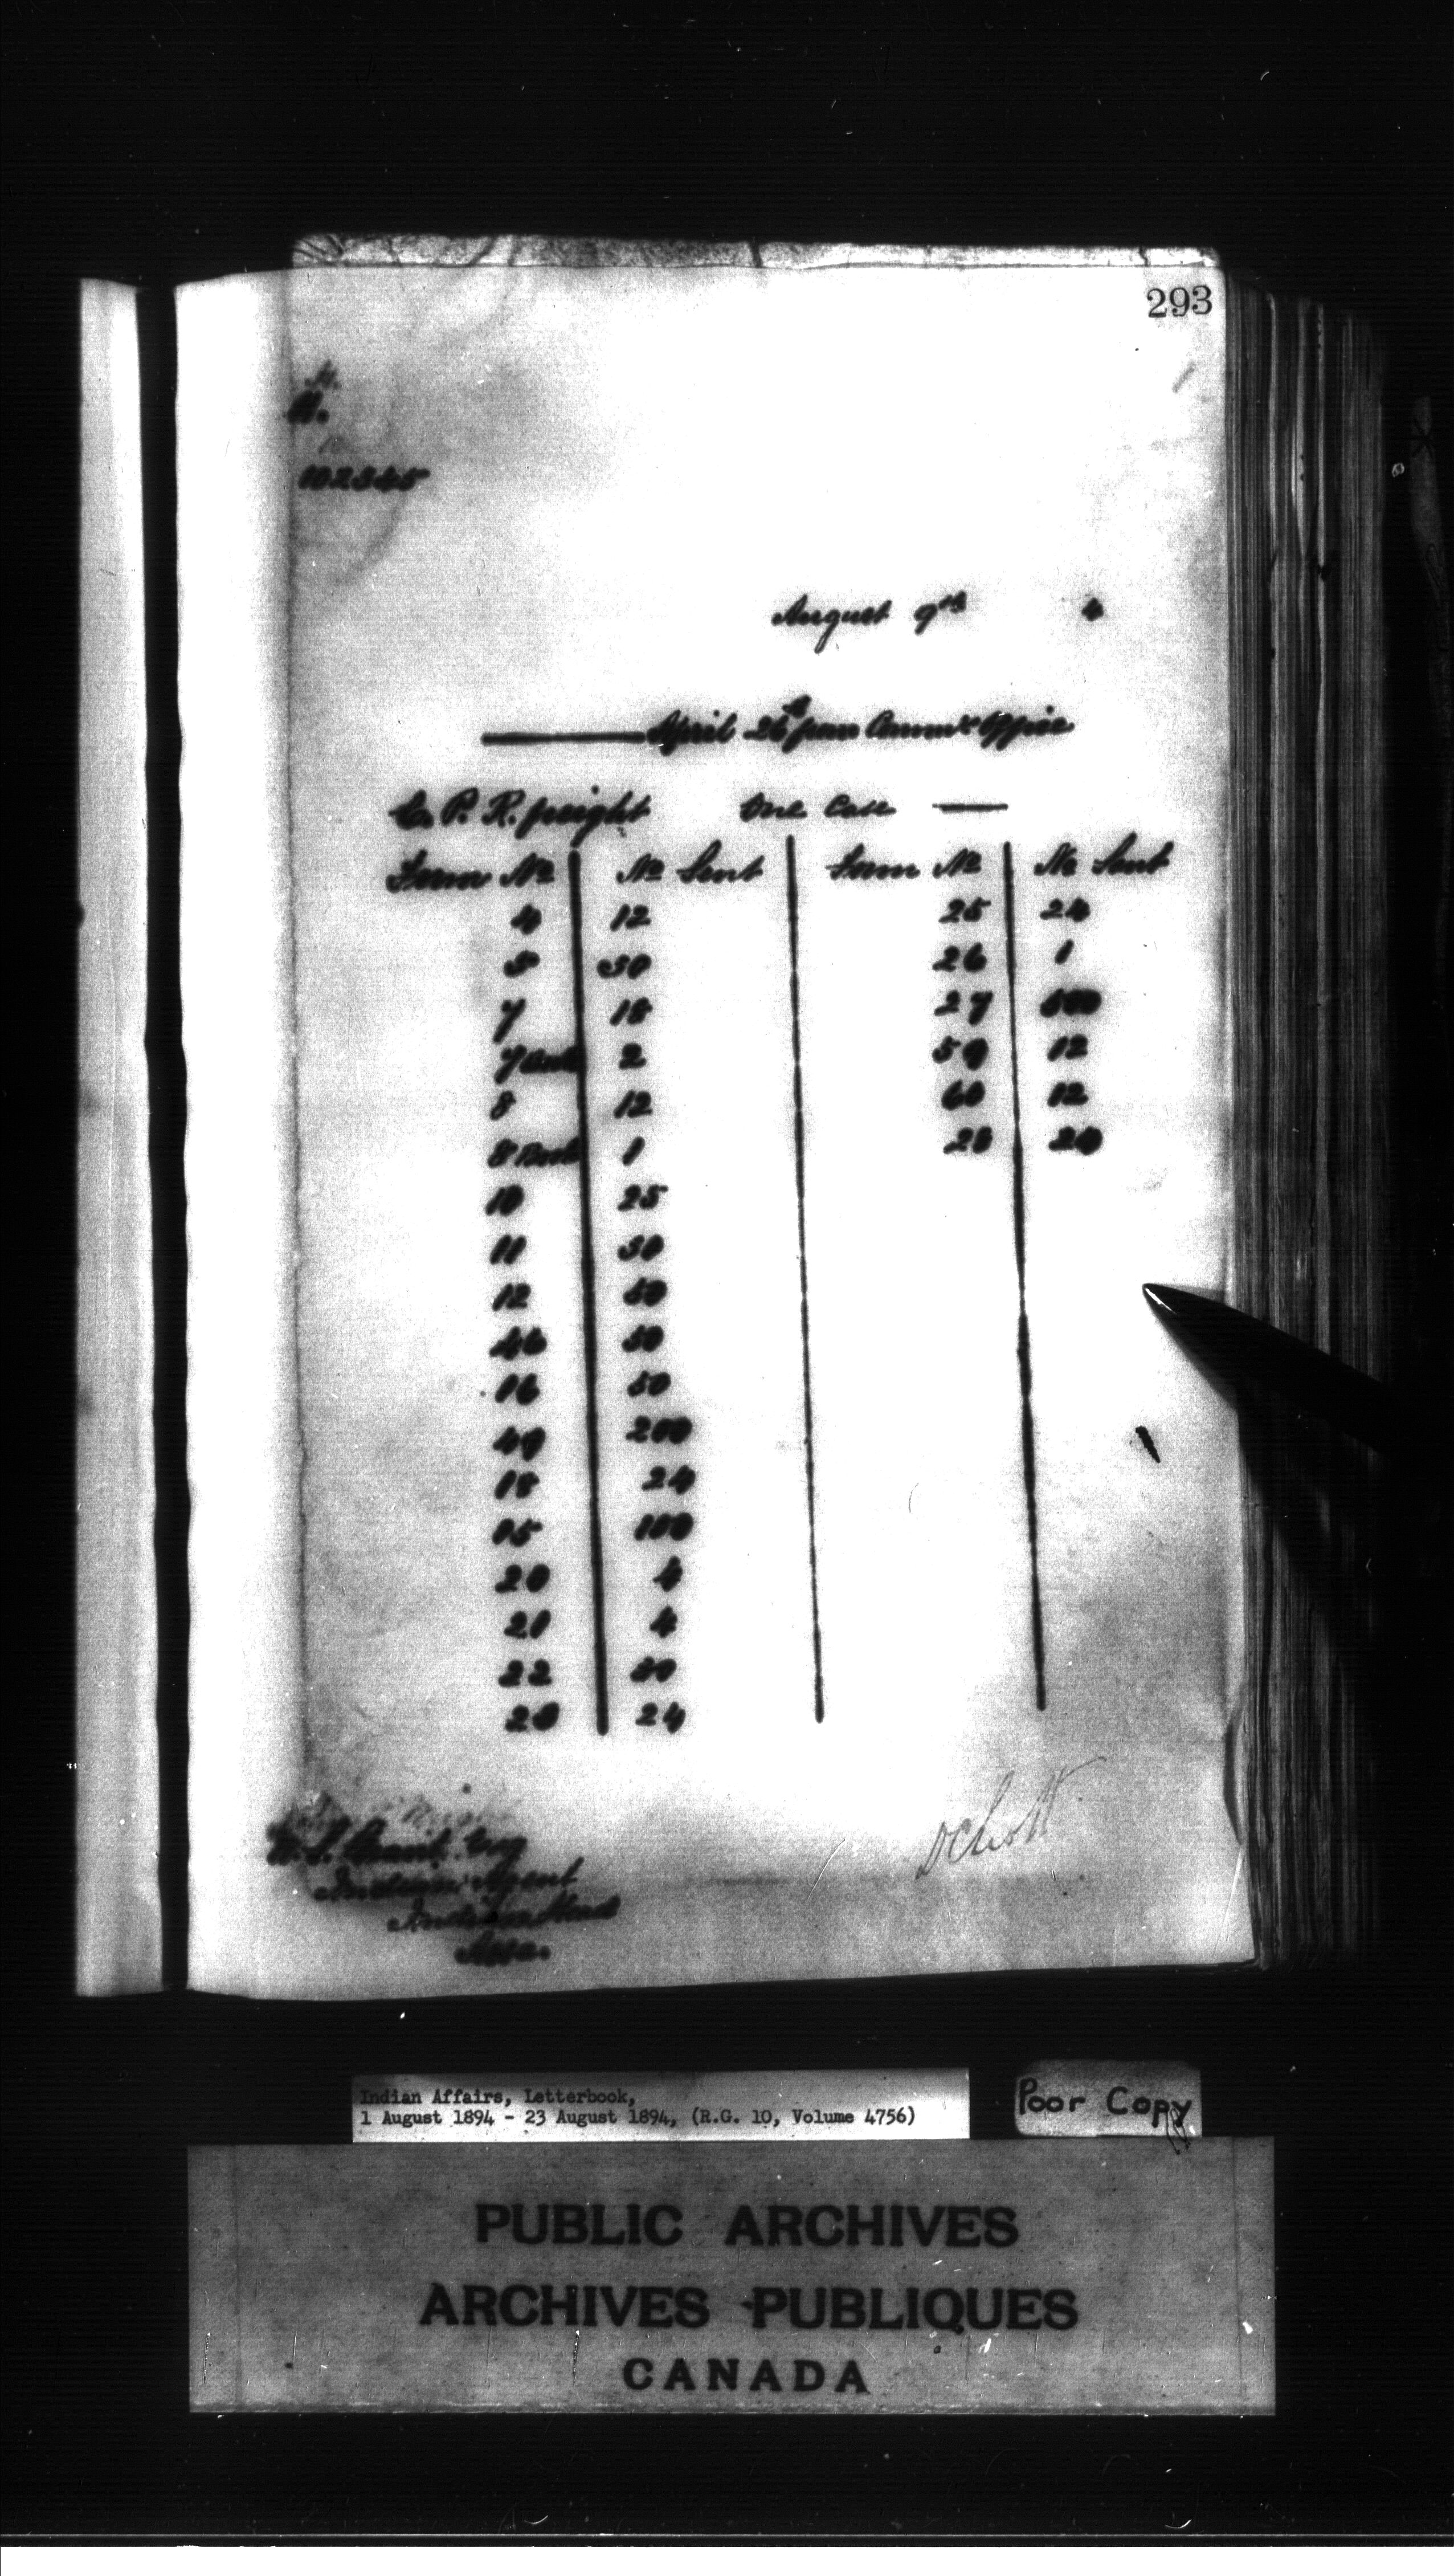 293
102345
August 9th 4
April 26th from Commrs Office
C. P. R. freight One Case
Form No No Sent Form No No Sent
4 12 25 24
5 50 26 1
7 18 27 500
7 2 59 12
8 12 60 12
8 1 28 24
10 25
11 50
12 50
46 50
16 50
49 200
18 24
15 100
20 4
21 4
22 50
24
DCScott
W. S. Grant Esq
Indian Agent
Indian Head
Assa.
Indian Affairs, Letterbook,
1 August 1894 - 23 August 1894, (R.G. 10, Volume 4756)
Poor Copy
PUBLIC ARCHIVES
ARCHIVES PUBLIQUES
CANADA